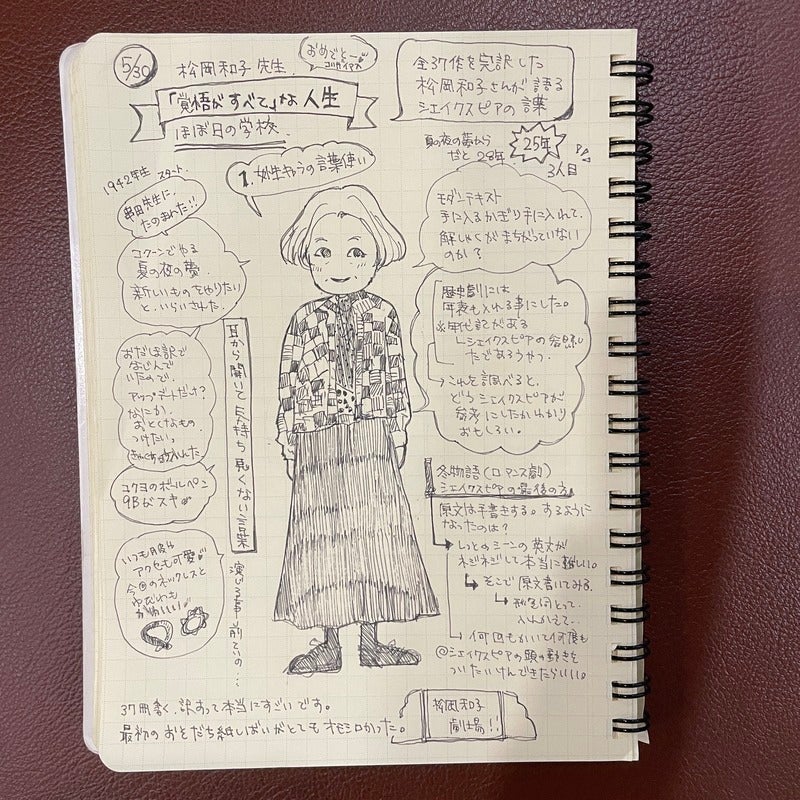 5/30
松岡和子先生
おめでとー
「覚悟がすべて」な人生
ほぼ日の学校
全37作を完訳した
松岡和子さんが語る
シェイクスピアの言葉
夏の夜の夢から
だと28年
25年
3人目
1942年生 スタート
串田先生に、
たのまれた!!
1.
の言葉使い
コクーンでやる
夏の夜の夢
新しいものをやりたい
と、いらいされた。
おだしま訳で
なじんで
いたので、
アップデートだけ?
なにか、
おとくなもの
つけたい、
コクヨのボールペン
9Bがスキ
いつも
アクセも可愛い
今日のネックレスと
ゆびわも
かわいい
耳から聞いて 長持ち 悪くない言葉
演じる事前ていの…
モダンテキスト
手に入るかぎり手に入れて、
解しゃくがまちがっていない
のか?
歴史劇には
年表も入れる事にした。
※年代記がある
シェイクスピアの参照し
たであろうやつ。
→これを調べると、
どうシェイクスピアが
参考にしたかわかり
おもしろい。
冬物語(ロマンス劇)
シェイクスピアの最後の方
原文は手書きする。するように
なったのは?
しっとのシーンの英文が
ネジネジして本当に難しい。
そこで原文書いてみる。
入れかえて…
→何回もかいて何度も
@シェイクスピアの頭の動きを
ついたいけんできたらいい。
37冊書く、訳すって本当にすごいです。
最初のおそだち紙しばいがとてもオモシロかった。
松岡和子
劇場!!